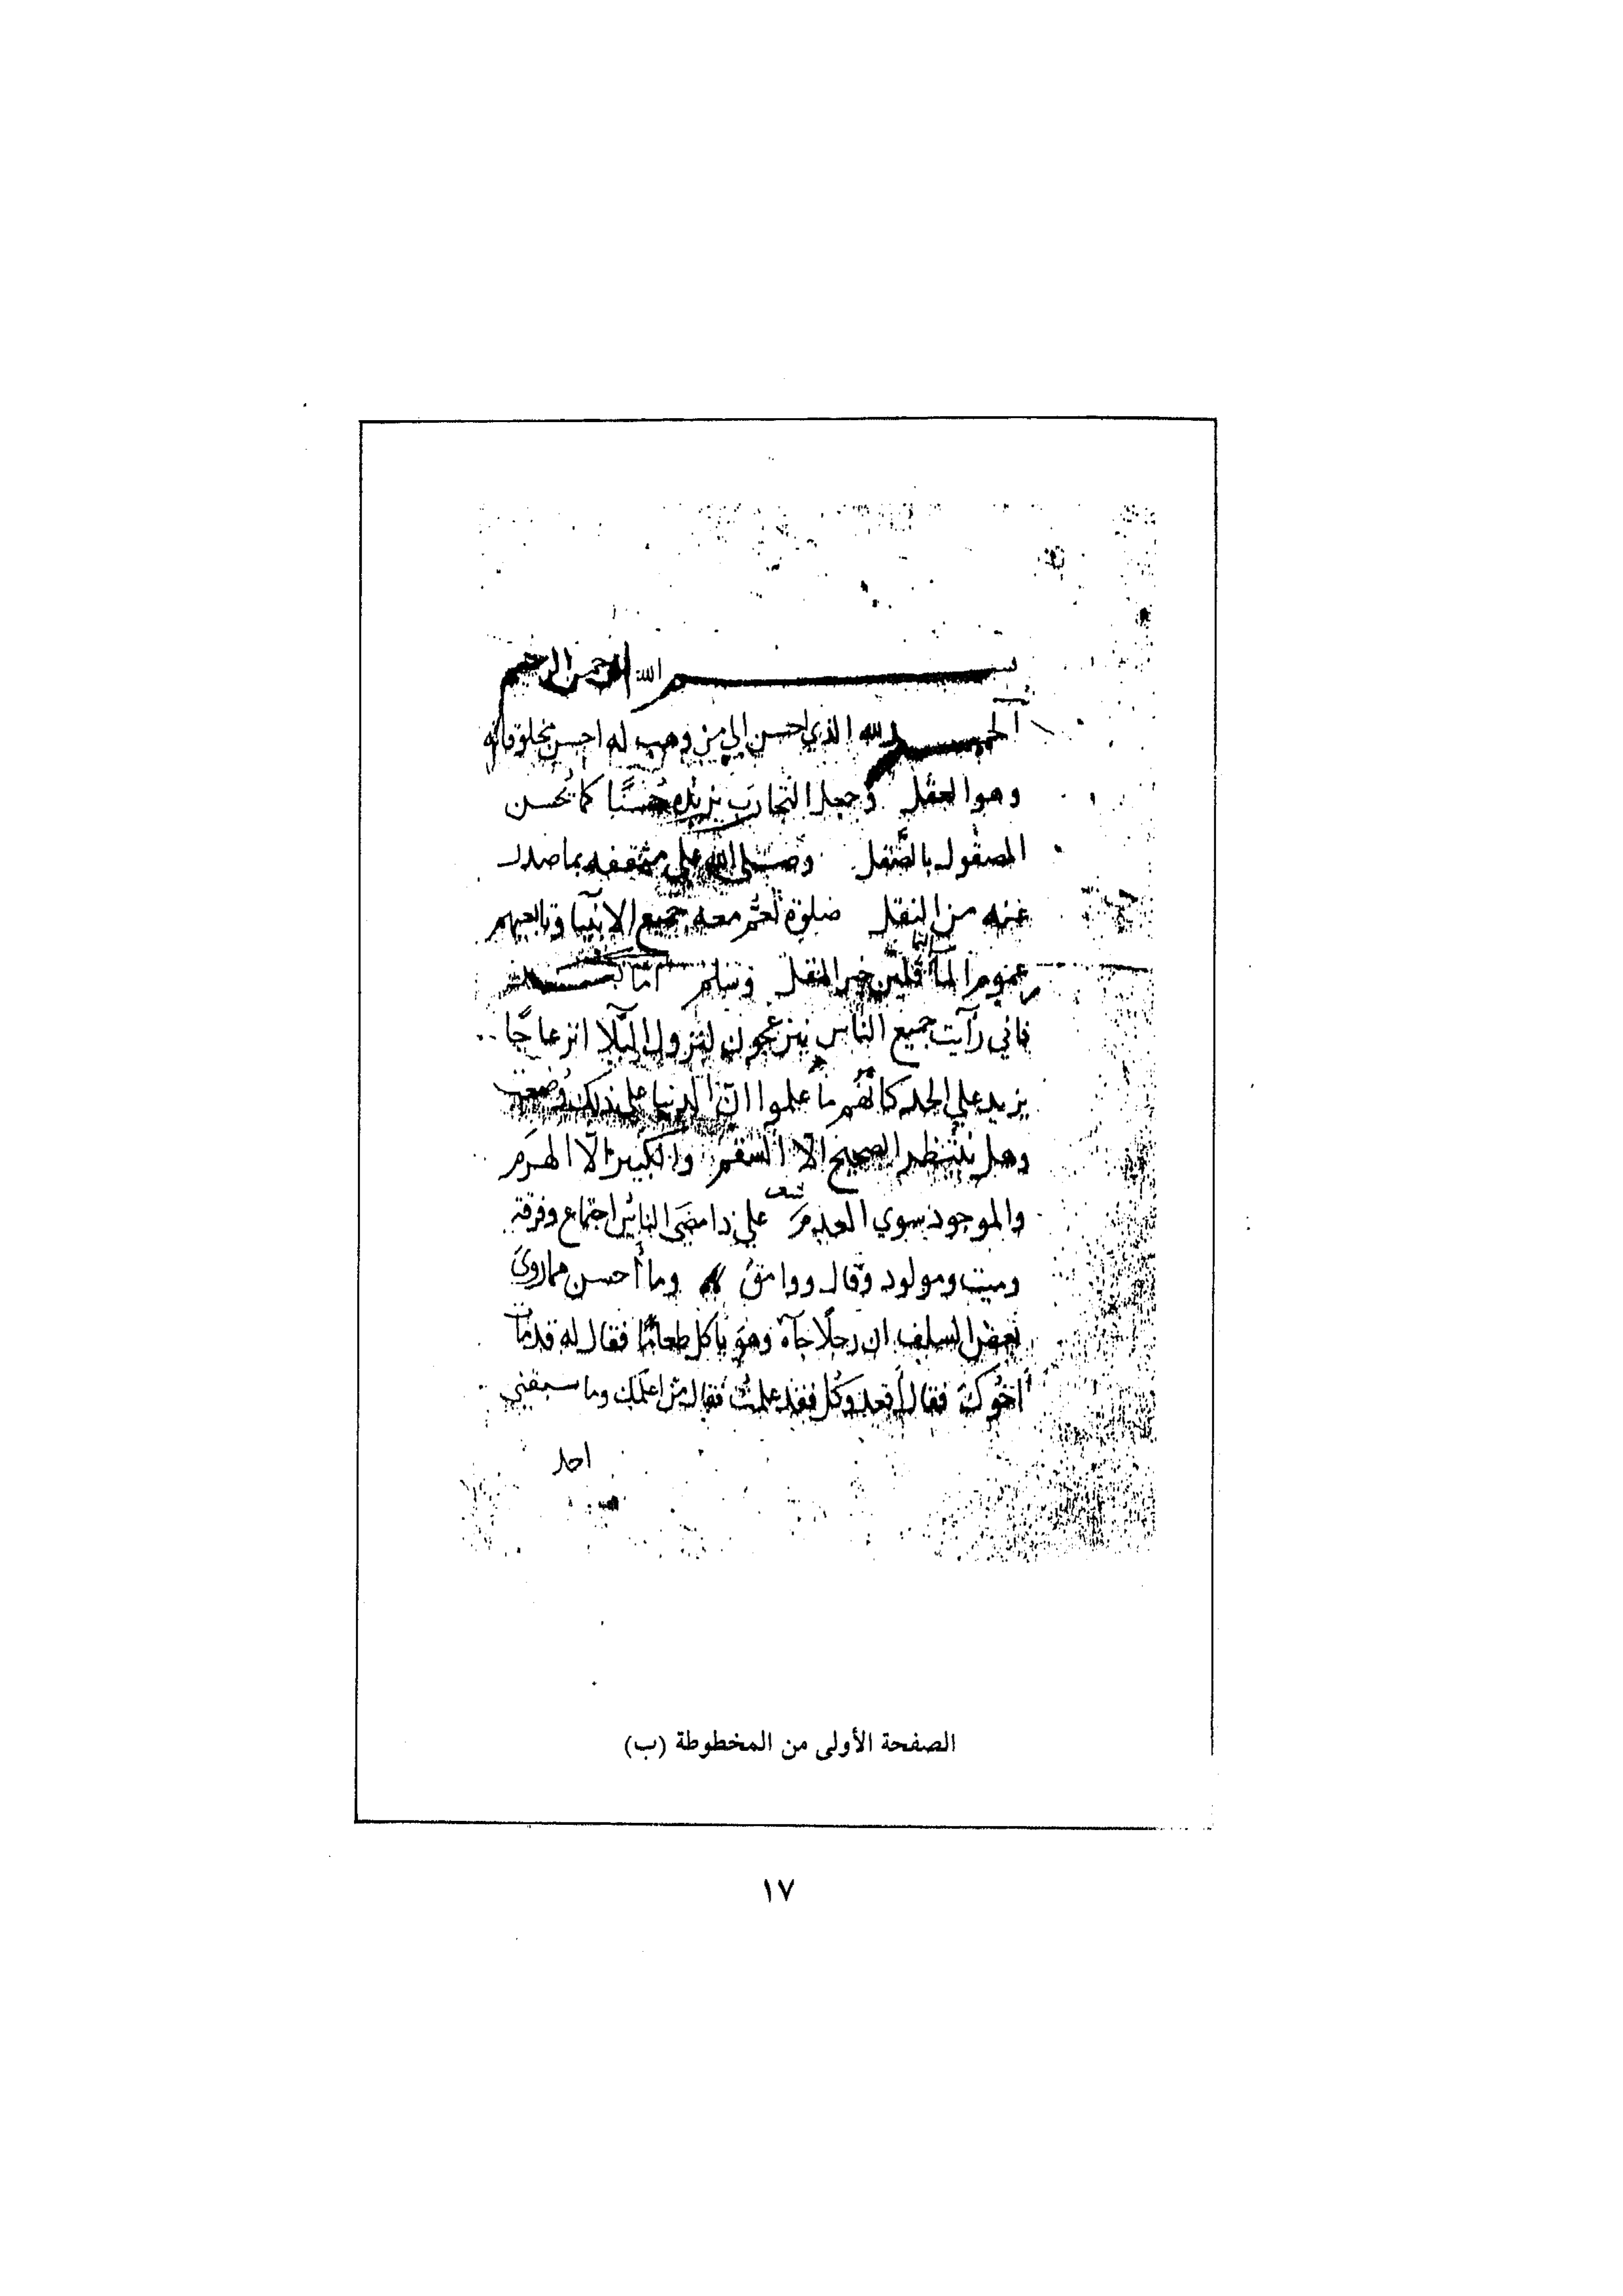 بسم الله الرحمن الرحيم
الحمد لله الذي احسن الي من وهب له احسن مخلوقاته
وهو العقل وجعل التجارب تزيده حُسنًا كما يُحسن
المصقول بالصقل وصلى الله على مثقفه بما صدر
عنه من النقل صلوة تعُم معه جميع الانبيآ وتابعيهم
عموم الما قلتين خير المقل وسلم امّا بعد
فاني رآيت جميع الناس ينزعجون لنزول البَلآ انزعاجًا
يزيد علي الحد كانهُم ما علموا انّ الدنيا على ذلك وُضعت
وهل ينتظر الصحيح الا السقم والكبير الّا الهَرَم
والموجود سوي العدمَ شعر علي ذا مضَى الناسُ اجتماع وفرقة
وميت ومولود وقال ووامقُ وما أحسن مما رويَ
بعض السلف ان رجلًا جآه وهوَ ياكل طعامًا فقال له قد مات
اخُوكَ فقال أقعد وكُل فقد علمتُ فقال مَن اعلمك وما سبقني
احد
الصفحة الأولى من المخطوطة (ب)
١٧